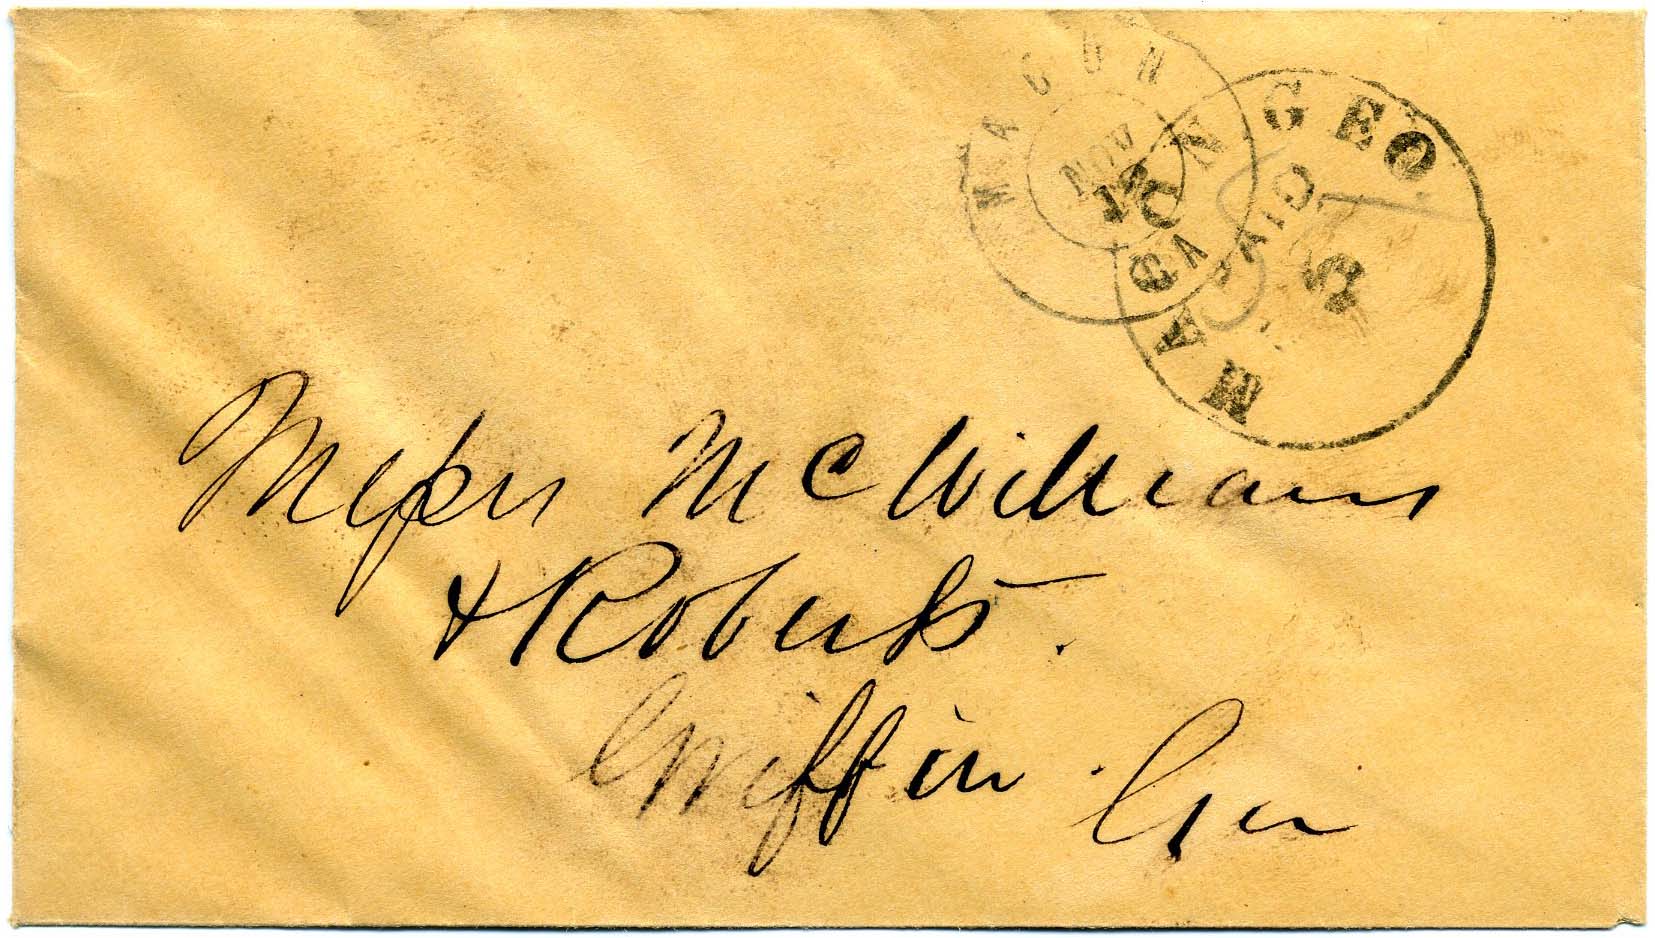 MACON GA
NOV
MACON GEO
PAID
5
Messrs McWilliams
& Roberts.
Griffin Geo